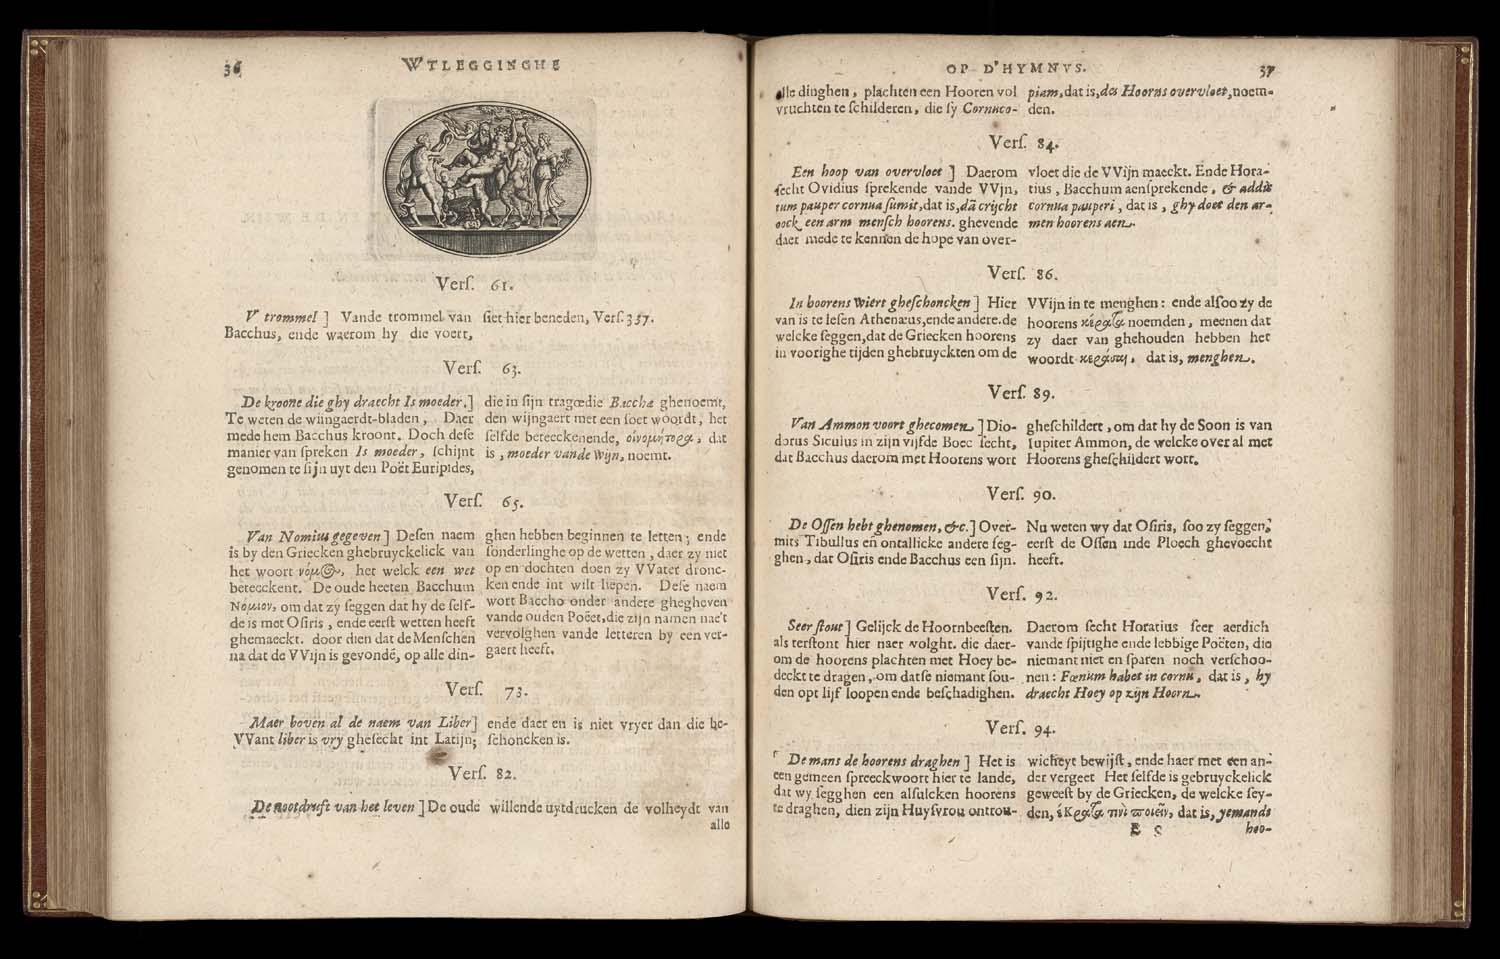 36
WTLEGGINGHE
Verſ. 61.
V trommel ] Vande trommel van
Bacchus, ende waerom hy die voert,
ſiet hier beneden, Verſ. 357.
Verſ. 63.
De kroone die ghy draecht Is moeder.]
Te weten de wijngaerdt-bladen, Daer
mede hem Bacchus kroont. Doch deſe
manier van ſpreken Is moeder, ſchijnt
genomen te ſijn uyt den Poët Euripides,
die in ſijn tragœdie Bacchæ ghenoemt,
den wijngaert met een ſoet woordt, het
ſelfde beteeckenende, οἰνομήτορα, dat
is, moeder vande Wijn, noemt.
Verſ. 65.
Van Nomius gegeven] Deſen naem
is by den Griecken ghebruyckelick van
het woort νόμος, het welck een wet
beteeckent. De oude heeten Bacchum
Νόμιον, om dat zy ſeggen dat hy de ſelf-
de is met Oſiris, ende eerſt wetten heeft
ghemaeckt. door dien dat de Menſchen
na dat de VVijn is gevondē, op alle din-
ghen hebben beginnen te letten; ende
ſonderlinghe op de wetten, daer zy niet
op en dochten doen zy VVater dronc-
ken ende int wilt liepen. Deſe naem
wort Baccho onder andere ghegheven
vande ouden Poëet, die zijn namen nae't
vervolghen vande letteren by een ver-
gaert heeft.
Verſ. 73.
Maer boven al de naem van Liber]
VVant liber is vry gheſecht int Latijn;
ende daer en is niet vryer dan die be-
ſchoncken is.
Verſ. 82.
De nootdruft van het leven ] De oude
willende uytdrucken de volheydt van
alle
OP D'HYMNVS.
37
alle dinghen, plachten een Hooren vol
vruchten te ſchilderen, die ſy Cornuco-
piam, dat is, des Hoorns overvloet, noem-
den.
Verſ. 84.
Een hoop van overvloet ] Daerom
ſecht Ovidius ſprekende vande VVijn,
tum pauper cornua ſumit, dat is, dā crijcht
oock een arm menſch hoorens. ghevende
daer mede te kennen de hope van over-
vloet die de VVijn maeckt. Ende Hora-
tius, Bacchum aenſprekende, & addis
cornua pauperi, dat is, ghy doet den ar-
men hoorens aen.
Verſ. 86.
In hoorens Wiert gheſchoncken ] Hier
van is te leſen Athenæus, ende andere. de
welcke ſeggen, dat de Griecken hoorens
in voorighe tijden ghebruyckten om de
VVijn in te menghen: ende alſoo zy de
hoorens κέρατα noemden, meenen dat
zy daer van ghehouden hebben het
woordt κεράσαι, dat is, menghen.
Verſ. 89.
Van Ammon voort ghecomen ] Dio-
dorus Siculus in zijn vijfde Boec ſecht,
dat Bacchus daerom met Hoorens wort
gheſchildert, om dat hy de Soon is van
Iupiter Ammon, de welcke over al met
Hoorens gheſchildert wort.
Verſ. 90.
De Oſſen hebt ghenomen, &c.] Over-
mits Tibullus eñ ontallicke andere ſeg-
ghen, dat Oſiris ende Bacchus een ſijn.
Nu weten wy dat Oſiris, ſoo zy ſeggen,
eerſt de Oſſen inde Ploech ghevoecht
heeft.
Verſ. 92.
Seer ſtout ] Gelijck de Hoornbeeſten.
als terſtont hier naer volght. die daer-
om de hoorens plachten met Hoey be-
deckt te dragen, om datſe niemant ſou-
den opt lijf loopen ende beſchadighen.
Daerom ſecht Horatius ſeer aerdich
vande ſpijtighe ende lebbige Poëten, die
niemant niet en ſparen noch verſchoo-
nen: Fœnum habet in cornu, dat is, hy
draecht Hoey op zijn Hoorn.
Verſ. 94.
De mans de hoorens draghen ] Het is
een gemeen ſpreeckwoort hier te lande,
dat wy ſegghen een alſulcken hoorens
te draghen, dien zijn Huyſvrou ontrou-
wicheyt bewijſt, ende haer met een an-
der vergeet Het ſelfde is gebruyckelick
geweeſt by de Griecken, de welcke ſey-
den, κέρατα τινὶ ποιεῖν, dat is, yemandt
E
hoo-